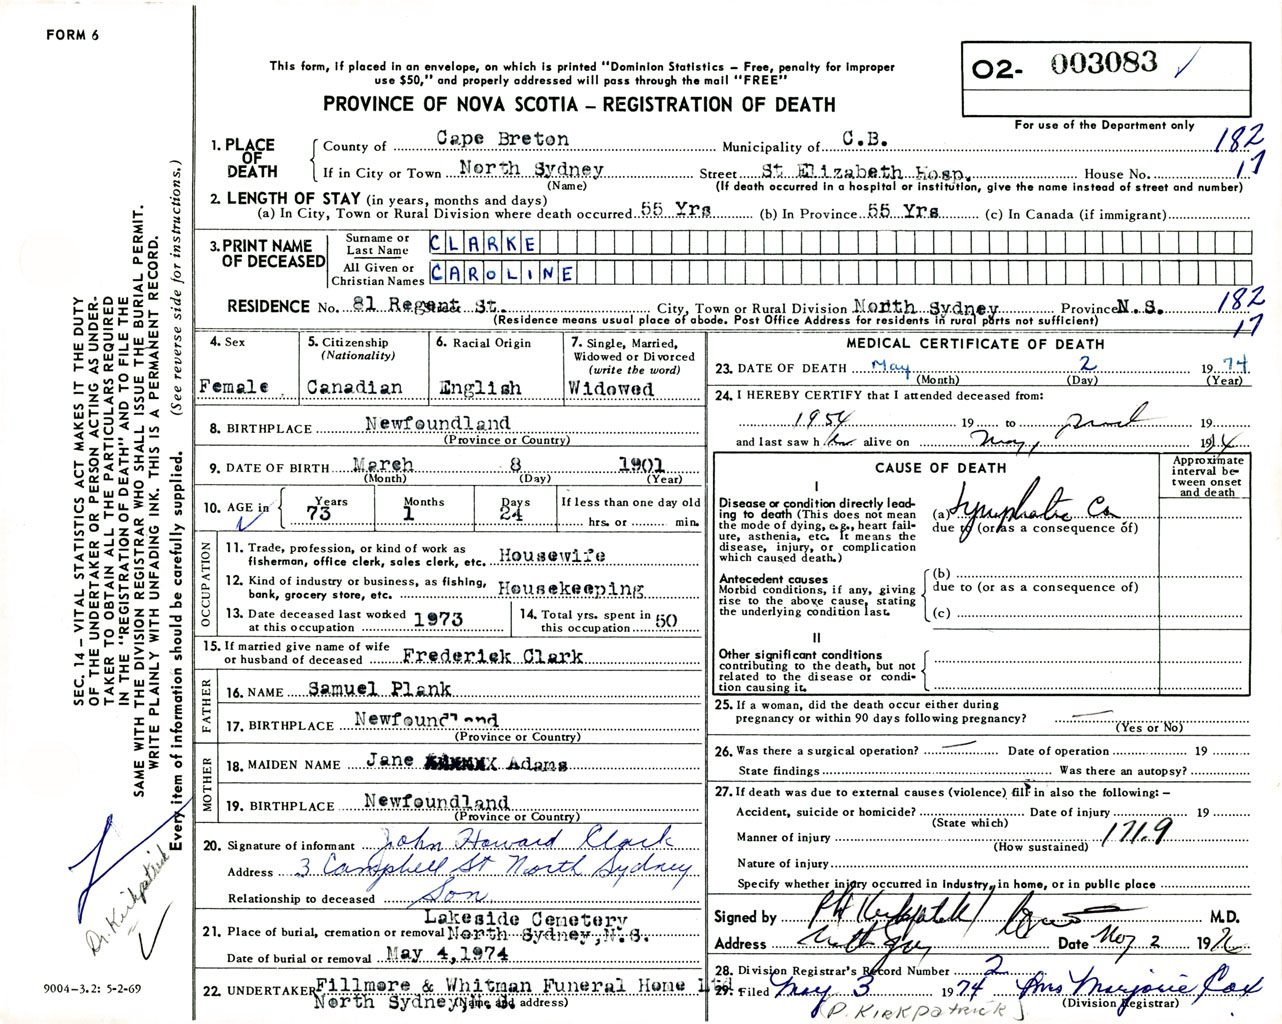 FORM 6
This form, if placed in an envelope, on which is printed "Dominion Statistics – Free, penalty for improper
use $50," and properly addressed will pass through the mail "FREE"
PROVINCE OF NOVA SCOTIA – REGISTRATION OF DEATH
O2- 003083 ✓
For use of the Department only
182
17
1. PLACE OF DEATH
County of Cape Breton Municipality of C.B.
If in City or Town North Sydney Street St Elizabeth Hosp. House No.
(Name) (If death occurred in a hospital or institution, give the name instead of street and number)
2. LENGTH OF STAY (in years, months and days)
(a) In City, Town or Rural Division where death occurred 55 Yrs (b) In Province 55 Yrs (c) In Canada (if immigrant)
3. PRINT NAME OF DECEASED
Surname or Last Name CLARKE
All Given or Christian Names CAROLINE
182
17
RESIDENCE No. 81 Regent St. City, Town or Rural Division North Sydney Province N.S.
(Residence means usual place of abode. Post Office Address for residents in rural parts not sufficient)
4. Sex
Female
5. Citizenship
(Nationality)
Canadian
6. Racial Origin
English
7. Single, Married,
Widowed or Divorced
(write the word)
Widowed
8. BIRTHPLACE Newfoundland
(Province or Country)
9. DATE OF BIRTH March 8 1901
(Month) (Day) (Year)
10. AGE in
Years 73
Months 1
Days 24
If less than one day old
hrs. or min.
OCCUPATION
11. Trade, profession, or kind of work as
fisherman, office clerk, sales clerk, etc. Housewife
12. Kind of industry or business, as fishing,
bank, grocery store, etc. Housekeeping
13. Date deceased last worked
at this occupation 1973
14. Total yrs. spent in
this occupation 50
15. If married give name of wife
or husband of deceased Frederick Clark
FATHER
16. NAME Samuel Plank
17. BIRTHPLACE Newfoundland
(Province or Country)
MOTHER
18. MAIDEN NAME Jane Adams
19. BIRTHPLACE Newfoundland
(Province or Country)
20. Signature of informant John Howard Clark
Address 3 Campbell St North Sydney
Relationship to deceased Son
Lakeside Cemetery
21. Place of burial, cremation or removal North Sydney, N.S.
Date of burial or removal May 4, 1974
22. UNDERTAKER Fillmore & Whitman Funeral Home Ltd.
North Sydney N.S. (Name and address)
MEDICAL CERTIFICATE OF DEATH
23. DATE OF DEATH May 2 1974
(Month) (Day) (Year)
24. I HEREBY CERTIFY that I attended deceased from:
1954 19 to 19
and last saw h er alive on May, 1974
CAUSE OF DEATH
Approximate
interval be-
tween onset
and death
I
Disease or condition directly lead-
ing to death (This does not mean
the mode of dying, e.g., heart fail-
ure, asthenia, etc. It means the
disease, injury, or complication
which caused death.)
(a) Lymphatic Ca
due to (or as a consequence of)
Antecedent causes
Morbid conditions, if any, giving
rise to the above cause, stating
the underlying condition last.
(b)
due to (or as a consequence of)
(c)
II
Other significant conditions
contributing to the death, but not
related to the disease or condi-
tion causing it.
25. If a woman, did the death occur either during
pregnancy or within 90 days following pregnancy? —
(Yes or No)
26. Was there a surgical operation? — Date of operation 19
State findings Was there an autopsy?
27. If death was due to external causes (violence) fill in also the following: –
Accident, suicide or homicide? Date of injury 19
(State which)
Manner of injury 1719
(How sustained)
Nature of injury
Specify whether injury occurred in industry, in home, or in public place
Signed by Kirkpatrick M.D.
Address North Syd Date May 2 19
28. Division Registrar's Record Number 2
29. Filed May 3 1974 Mrs Marjorie Cox
(Division Registrar)
(P. KIRKPATRICK)
SEC. 14 – VITAL STATISTICS ACT MAKES IT THE DUTY
OF THE UNDERTAKER OR PERSON ACTING AS UNDER-
TAKER TO OBTAIN ALL THE PARTICULARS REQUIRED
IN THE "REGISTRATION OF DEATH" AND TO FILE THE
SAME WITH THE DIVISION REGISTRAR WHO SHALL ISSUE THE BURIAL PERMIT.
WRITE PLAINLY WITH UNFADING INK. THIS IS A PERMANENT RECORD.
Every item of information should be carefully supplied. (See reverse side for instructions.)
Dr. Kirkpatrick
9004-3.2: 5-2-69